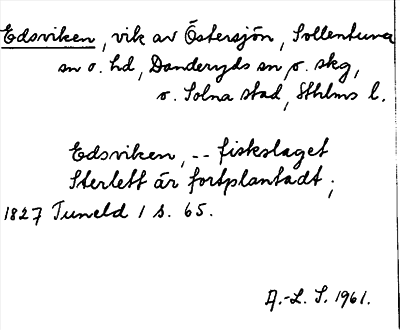 Edsviken, vik av Östersjön, Sollentuna
sn o. hd, Danderyds sn o. skg,
o. Solna stad, Sthlms l.
Edsviken, -- fiskslaget
Sterlett är fortplantadt;
1827 Tuneld 1 s. 65.
A.-L. S. 1961.